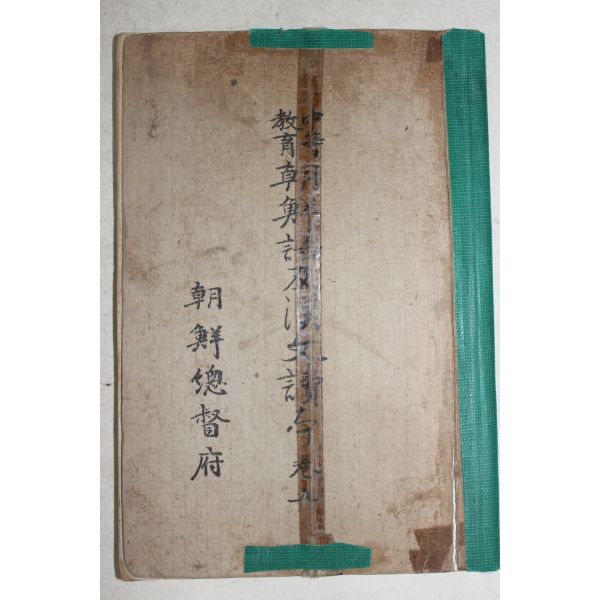 中等
教育
朝鮮語及漢文讀本 卷五
朝鮮總督府